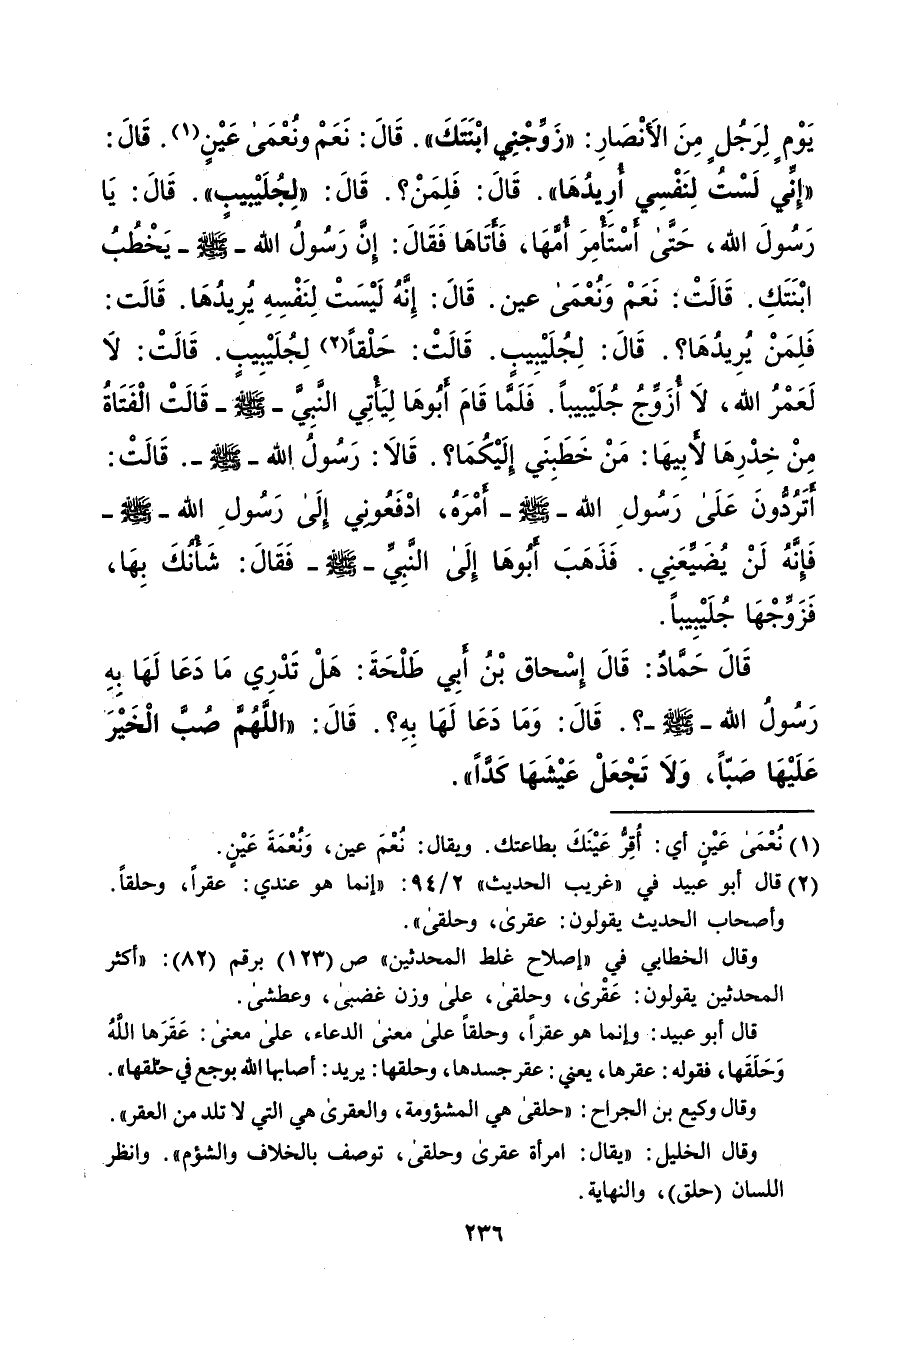 يَوْمٍ لِرَجُلٍ مِنَ الأَنْصَارِ: «زَوِّجْنِي ابْنَتَكَ». قَالَ: نَعَمْ ونُعْمَىٰ عَيْنٍ(١). قَالَ:
«إِنِّي لَسْتُ لِنَفْسِي أُرِيدُهَا». قَالَ: فَلِمَنْ؟. قَالَ: «لِجُلَيْبِيبٍ». قَالَ: يَا
رَسُولَ الله، حَتَّىٰ أَسْتَأْمِرَ أُمَّهَا، فَأَتَاهَا فَقَالَ: إِنَّ رَسُولُ الله ـ ﷺ ـ يَخْطُبُ
ابْنَتَكِ. قَالَتْ: نَعَمْ وَنُعْمَىٰ عين. قَالَ: إِنَّهُ لَيْسَتْ لِنَفْسِهِ يُرِيدُهَا. قَالَت:
فَلِمَنْ يُرِيدُهَا؟. قَالَ: لِجُلَيْبِيبٍ. قَالَتْ: حَلْقاً(٢) لِجُلَيْبِيبٍ. قَالَتْ: لَا
لَعَمْرُ الله، لَا أُزَوِّجُ جُلَيْبِيباً. فَلَمَّا قَامَ أَبُوهَا لِيَأْتِي النَّبِيَّ ـ ﷺ ـ قَالَتْ الْفَتَاةُ
مِنْ خِدْرِهَا لأَبِيهَا: مَنْ خَطَبَنِي إِلَيْكُمَا؟. قَالَا: رَسُولُ الله ـ ﷺ ـ. قَالَتْ:
أَتَرُدُّونَ عَلَىٰ رَسُولِ الله ـ ﷺ ـ أَمْرَهُ، ادْفَعُونِي إِلَىٰ رَسُولِ الله ـ ﷺ ـ
فَإِنَّهُ لَنْ يُضَيِّعَنِي. فَذَهَبَ أَبُوهَا إِلَىٰ النَّبِيِّ ـ ﷺ ـ فَقَالَ: شَأْنُكَ بِهَا،
فَزَوِّجْهَا جُلَيْبِيباً.
قَالَ حَمَّادٌ: قَالَ إِسْحاق بْنُ أَبِي طَلْحَةَ: هَلْ تَدْرِي مَا دَعَا لَهَا بِهِ
رَسُولُ الله ـ ﷺ ـ؟. قَالَ: وَمَا دَعَا لَهَا بِهِ؟. قَالَ: «اللَّهُمَّ صُبَّ الْخَيْرَ
عَلَيْهَا صَبّاً، وَلَا تَجْعَلْ عَيْشَهَا كَدّاً».
(١) نُعْمَىٰ عَيْنٍ أي: أُقِرُّ عَيْنَكَ بطاعتك. ويقال: نُعْمَ عين، وَنُعْمَةَ عَيْنٍ.
(٢) قال أبو عبيد في «غريب الحديث» ٩٤/٢: «إنما هو عندي: عقراً، وحلقاً.
وأصحاب الحديث يقولون: عقرىٰ، وحلقىٰ».
وقال الخطابي في «إصلاح غلط المحدثين» ص (١٢٣) برقم (٨٢): «أكثر
المحدثين يقولون: عَقْرىٰ، وحلقىٰ، علىٰ وزن غضبىٰ، وعطشىٰ.
قال أبو عبيد: وإنما هو عقراً، وحلقاً علىٰ معنىٰ الدعاء، علىٰ معنىٰ: عَقَرَها اللَّهُ
وَحَلَقَها، فقوله: عقرها، يعني: عقر جسدها، وحلقها: يريد: أصابها الله بوجع في حلقها».
وقال وكيع بن الجراح: «حلقىٰ هي المشؤومة، والعقرىٰ هي التي لا تلد من العقر».
وقال الخليل: «يقال: امرأة عقرىٰ وحلقىٰ، توصف بالخلاف والشؤم». وانظر
اللسان (حلق)، والنهاية.
٢٣٦